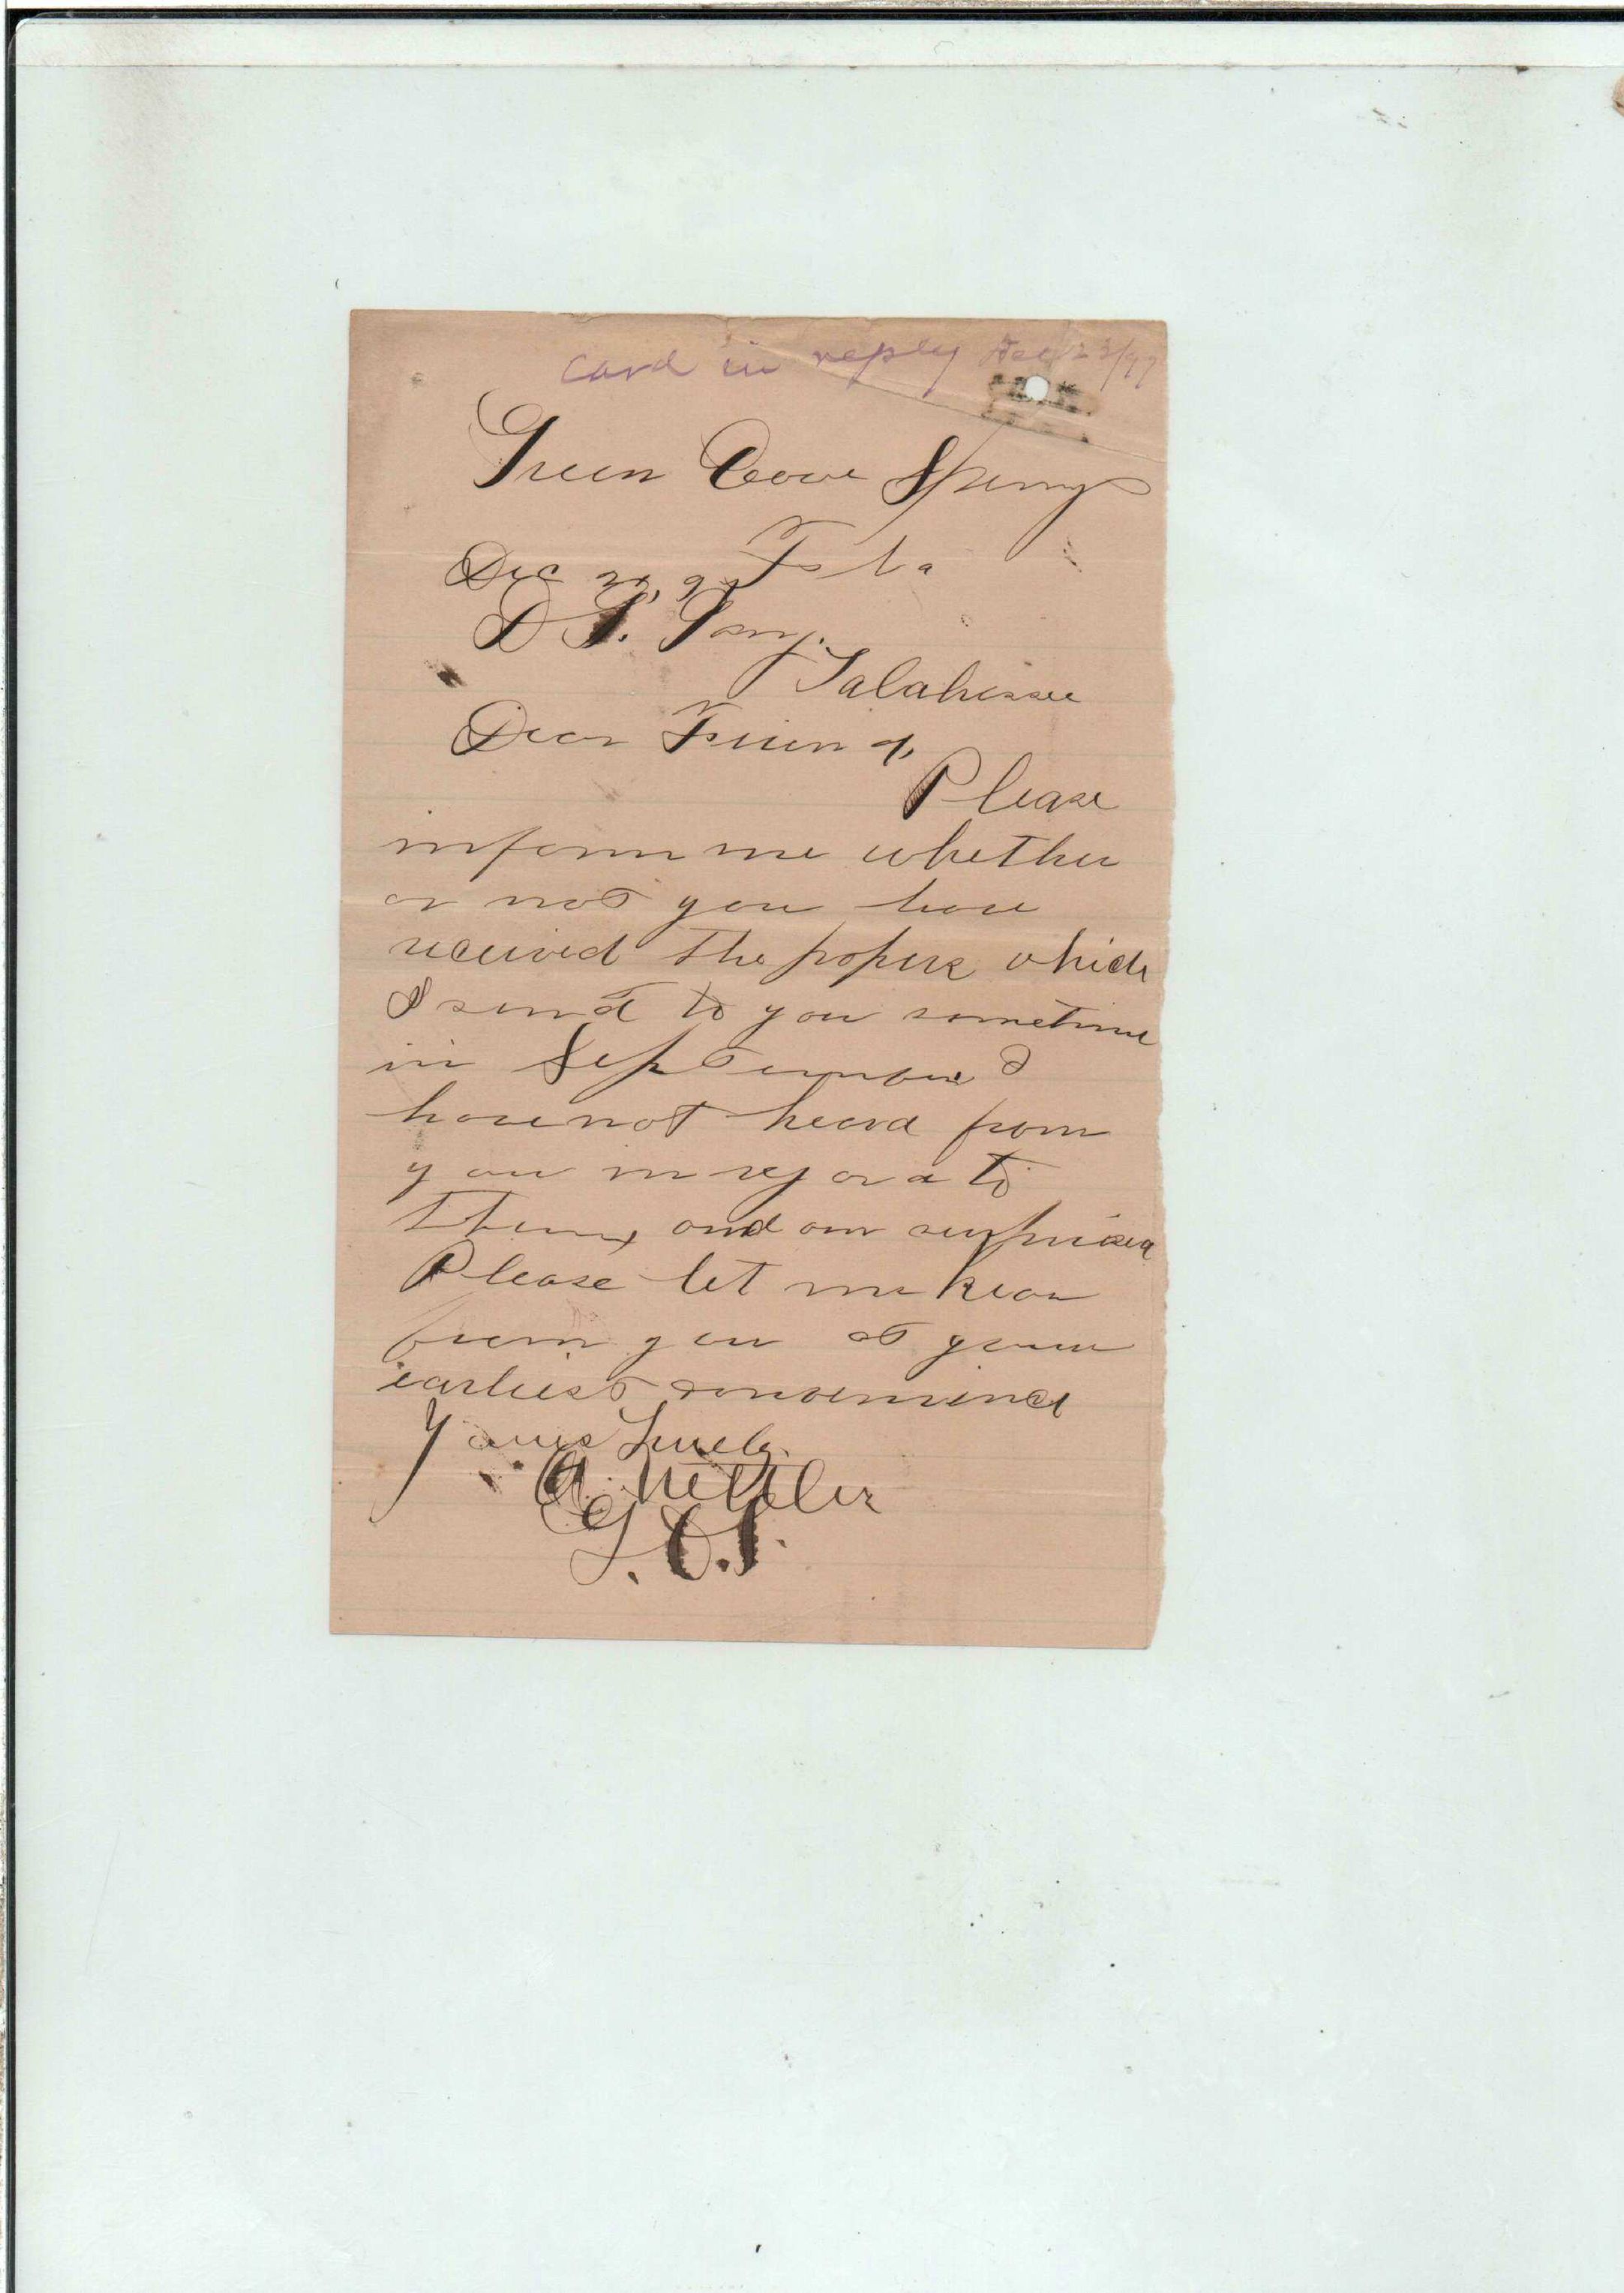 card in reply Dec 23/97
Green Cove Springs
Fla
Dec 20, 97
D S.
Talahassee
Dear Friend,
Please
inform me whether
or not you have
received the papers which
I send to you sometime
in September I
have not heard from
you in regard to
them, and am surprised
Please let me hear
from you at your
earliest convenience
Yours Truely.
A. Nettler
G. C. S.